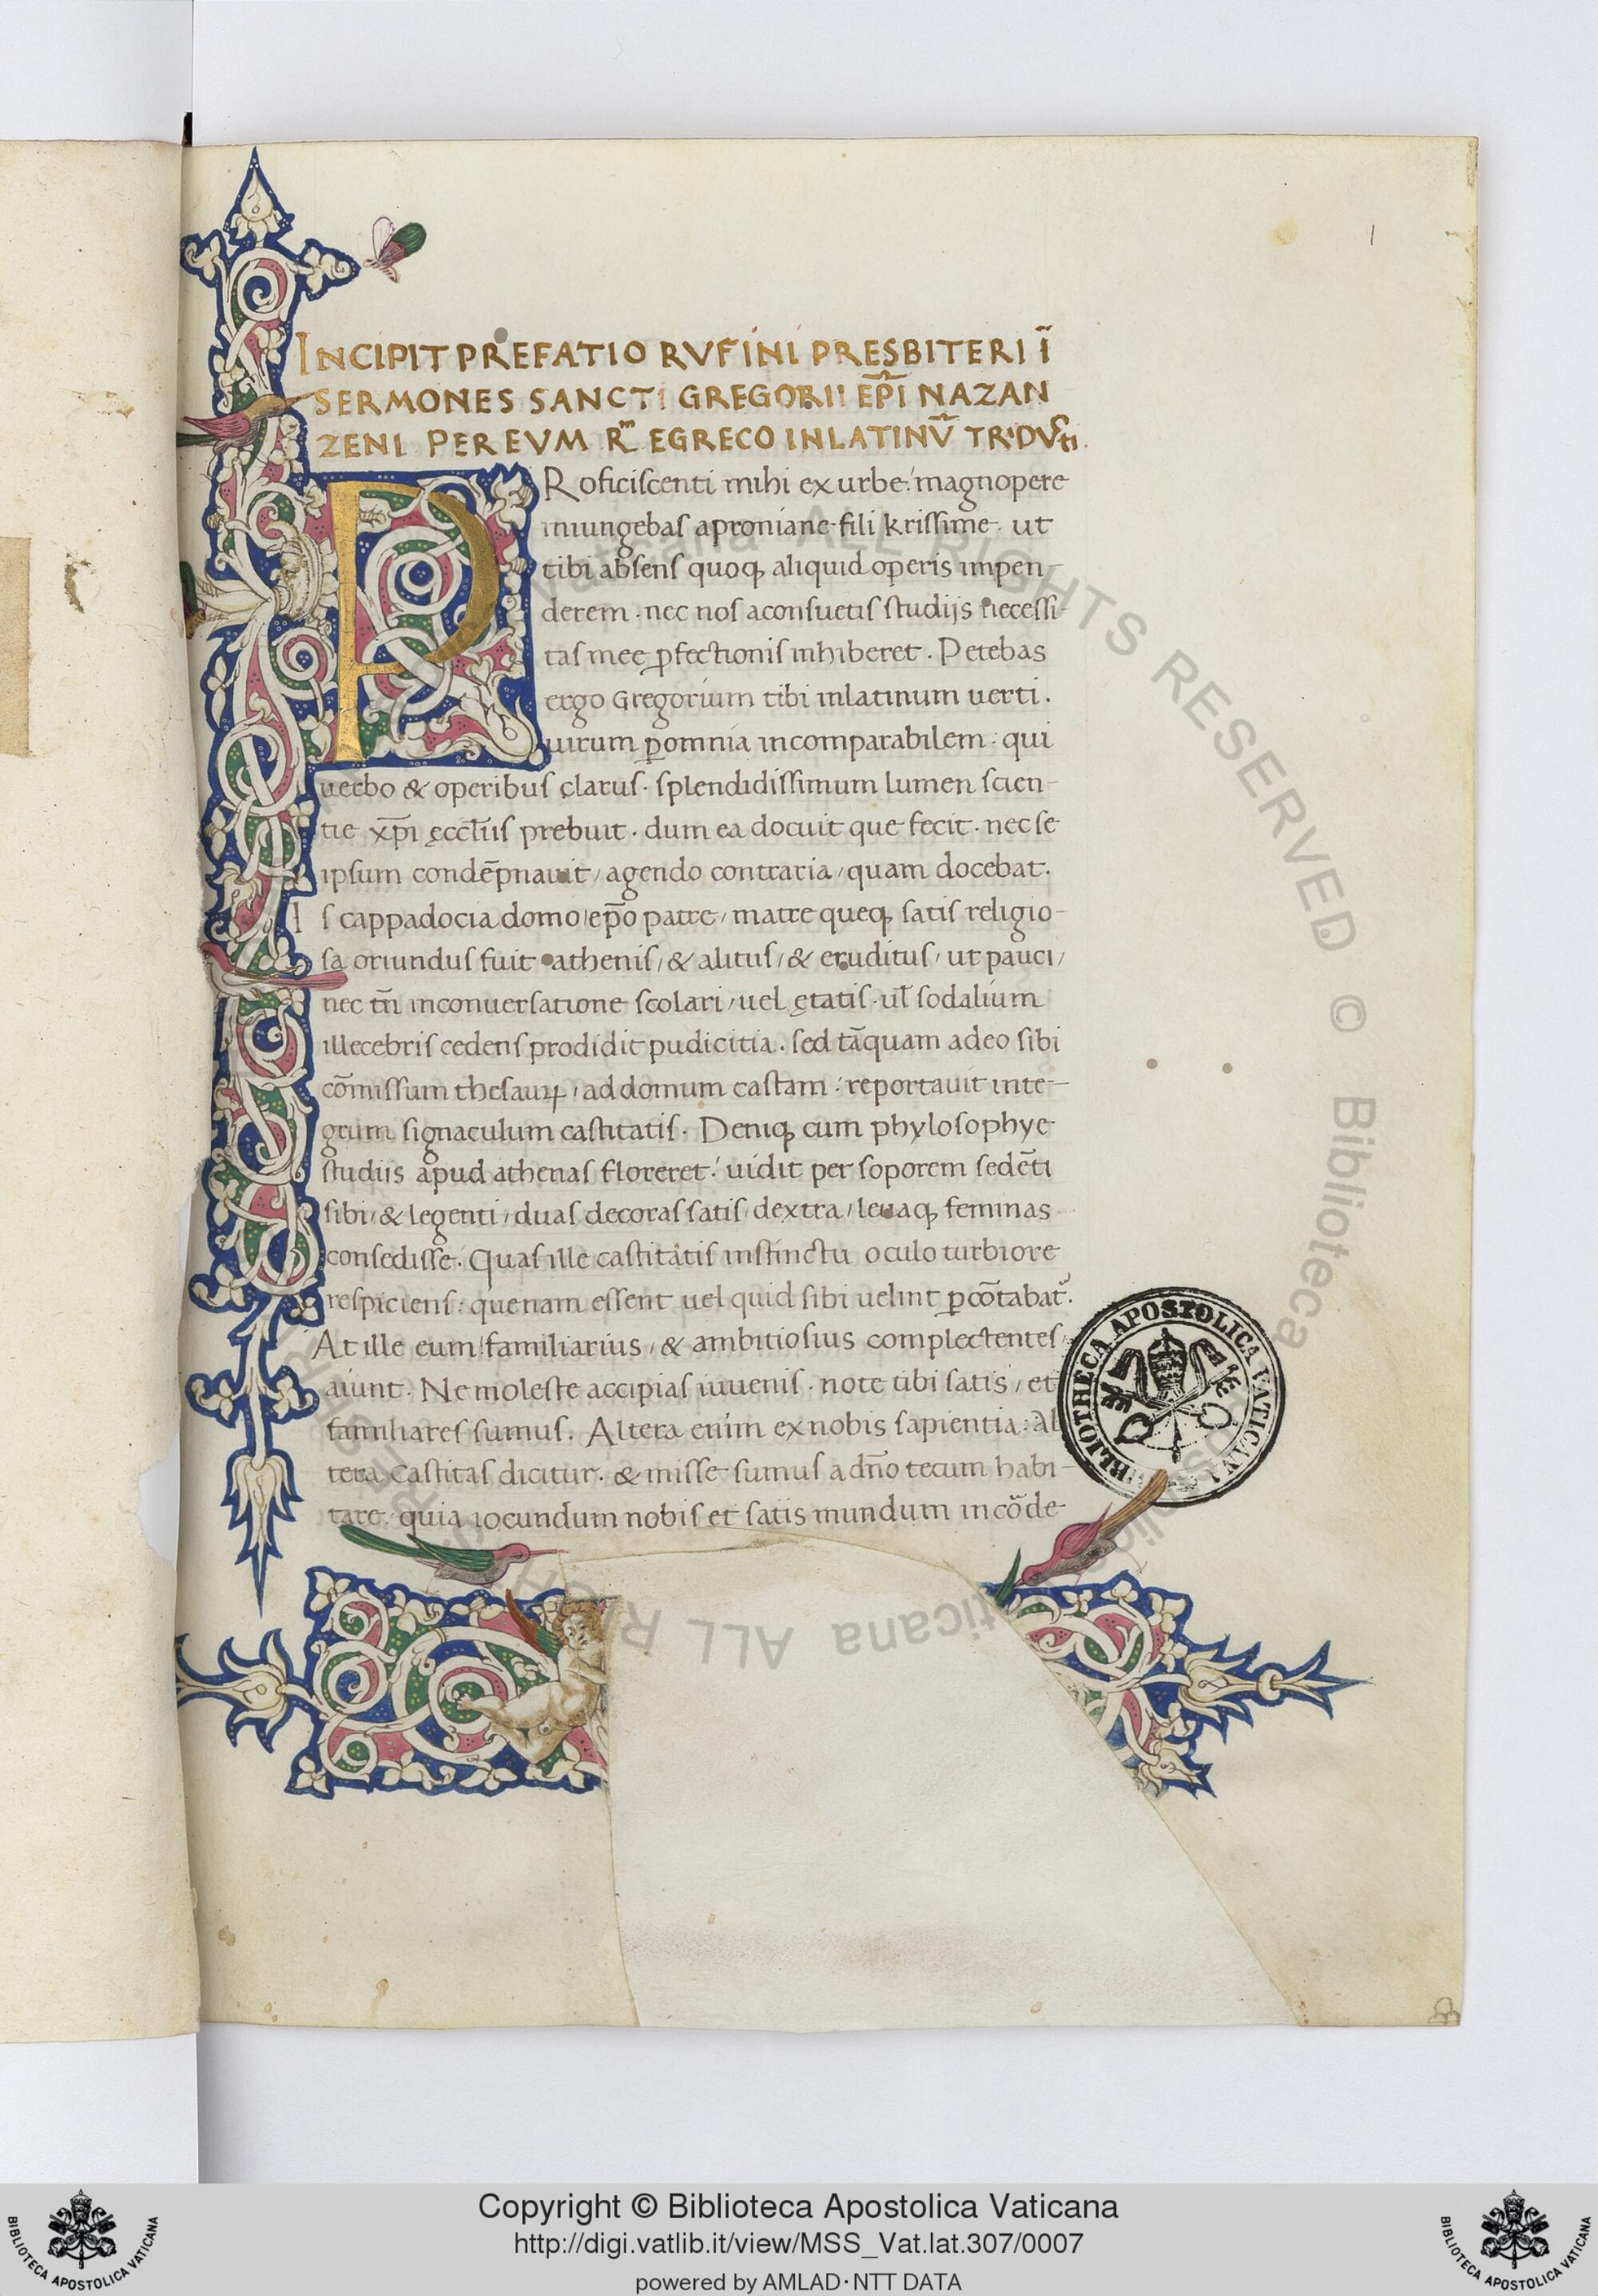 1
INCIPIT PREFATIO RVFINI PRESBITERI Ī
SERMONES SANCTI GREGORII EP̄I NAZAN
ZENI PER EVM R̄ EGRECO INLATINV̄ TR
PRoficiscenti mihi ex urbe: magnopere
iniungebas aproniane fili krissime. ut
tibi absens quoqꝫ aliquid operis impen-
derem. nec nos aconsuetis studijs necessi-
tas mee ꝑfectionis inhiberet. Petebas
ergo Gregorium tibi inlatinum uerti.
uirum ꝑomnia incomparabilem: qui
uerbo & operibus clarus. splendidissimum lumen scien-
tie xp̄i ęccl̄iis prebuit. dum ea docuit que fecit. nec se
ipsum condēpnauit, agendo contraria, quam docebat.
Is cappadocia domo, ep̄o patre, matre queqꝫ satis religio-
sa oriundus fuit athenis, & alitus, & eruditus, ut pauci,
nec tn̄ inconuersatione scolari, uel ętatis. ul̄ sodalium
illecebris cedens prodidit pudicitia. sed tāquam adeo sibi
cōmissum thesauꝝ, ad domum castam: reportauit inte-
grum signaculum castitatis. Deniqꝫ cum phylosophye
studiis apud athenas floreret: uidit per soporem sedēti
sibi, & legenti, duas decoras satis, dextra, leuaqꝫ feminas
consedisse. Quas ille castitatis instinctu oculo turbiore
respiciens: quenam essent uel quid sibi uelint ꝑcōtabat᷑.
At ille eum familiarius, & ambitiosius complectentes,
aiunt. Ne moleste accipias iuuenis. note tibi satis, et
familiares sumus. Altera enim ex nobis sapientia: Al
tera Castitas dicitur. & misse sumus a dn̄o tecum habi-
tare. quia iocundum nobis et satis mundum in cōde-
BIBLIOTHECA APOSTOLICA VATICANA
Vaticana ALL RIGHTS RESERVED © Biblioteca Apostolica Vaticana ALL RIGHTS RESERVED
Copyright © Biblioteca Apostolica Vaticana
http://digi.vatlib.it/view/MSS_Vat.lat.307/0007
powered by AMLAD·NTT DATA
BIBLIOTECA APOSTOLICA VATICANA
BIBLIOTECA APOSTOLICA VATICANA